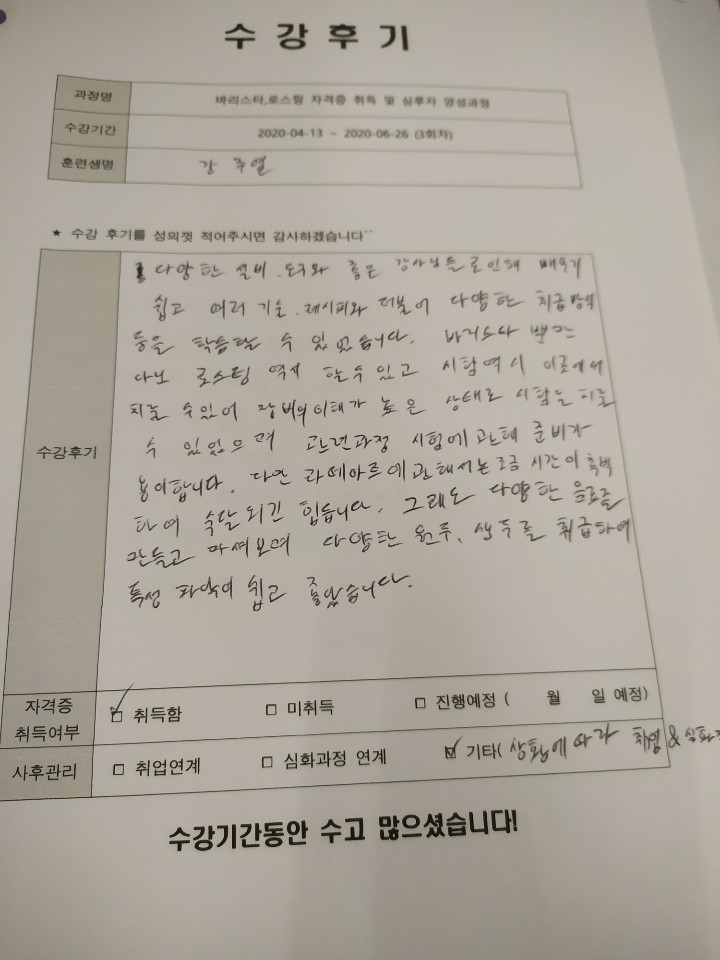 수 강 후 기
과정명 바리스타,로스팅 자격증 취득 및 실무자 양성과정
수강기간 2020-04-13 ~ 2020-06-26 (3회차)
훈련생명 강 주열
★ 수강 후기를 성의껏 적어주시면 감사하겠습니다^^
다양한 설비. 도구와 좋은 강사님들로 인해 배우기
쉽고 여러 기술. 레시피와 더불어 다양한 취급방식
등을 학습할 수 있었습니다. 바리스타 뿐만
아닌 로스팅 역시 할 수 있고 시험역시 이곳에서
치룰 수 있어 장비의 이해가 높은 상태로 시험을 치룰
수 있었으며 관련과정 시험에 관해 준비가
수강후기
용이합니다. 다만 라떼아르트에 관해서는 조금 시간이 촉박
하여 숙달되긴 힘듭니다. 그래도 다양한 음료를
만들고 마셔보며 다양한 원두, 생두를 취급하여
특성 파악이 쉽고 좋았습니다.
자격증 취득여부 □ 취득함 □ 미취득 □ 진행예정 ( 월 일 예정)
사후관리 □ 취업연계 □ 심화과정 연계 □ 기타( 상황에 따라 취업 & 심화
수강기간동안 수고 많으셨습니다!